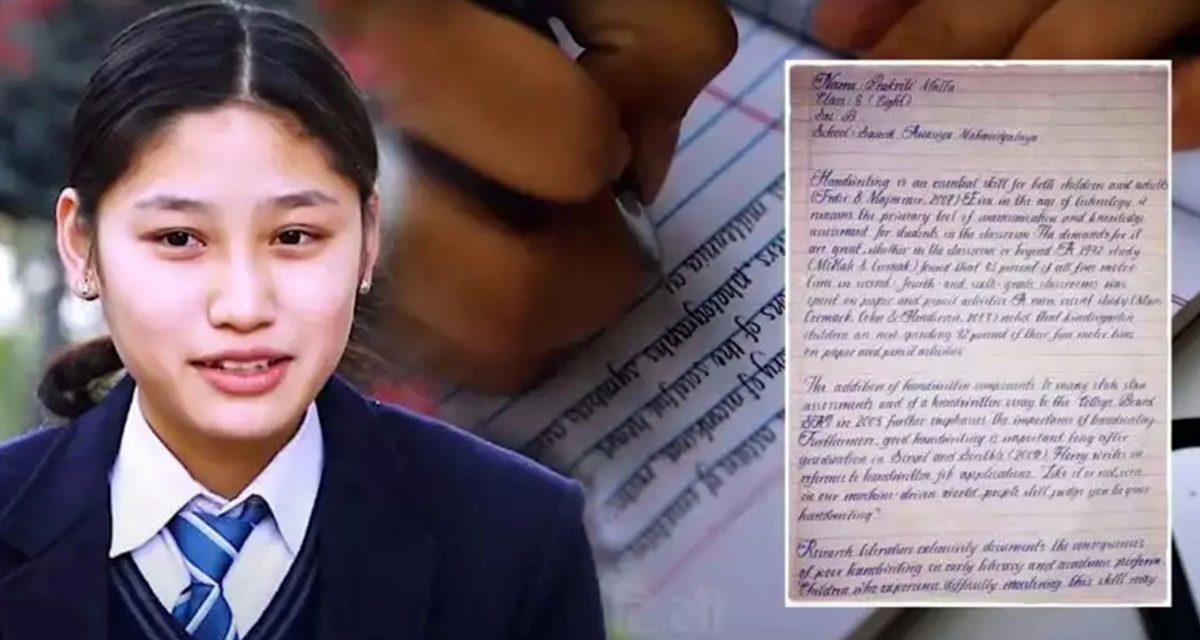 Name : Prakriti Malla
Class : 8 (Eight)
Sec : B
School : Sainik Awasiya Mahavidyalaya
Handwriting is an essential skill for both children and adults
(Feder & Majnemer, 2007) Even in the age of technology, it
remains the primary tool of communication and knowledge
assessment for students in the classroom. The demands for it
are great, whether in the classroom or beyond. A 1992 study
(McHale & Cermak) found that 85 percent of all fine motor
time in second- fourth- and sixth-grade classrooms was
spent on paper and pencil activities. A more recent study (
Cermak, Cohn & Henderson, ) noted that kindergarten
children are now spending 42 percent of their fine motor time
on paper and pencil activities
The addition of handwritten components to many state
assessments and of a handwritten essay to the College Board
SAT in 2005 further emphasis the importance of handwriting
Furthermore, good handwriting is important long after
graduation in Script and Scribble (2009), Florey writes in
reference to handwritten job applications. "Like it or not, even
in our machine-driven world, people still judge you by your
handwriting."
Research literature extensively documents the consequences
of poor handwriting on early literacy and academic perform
Children who experience difficulty mastering this skill may